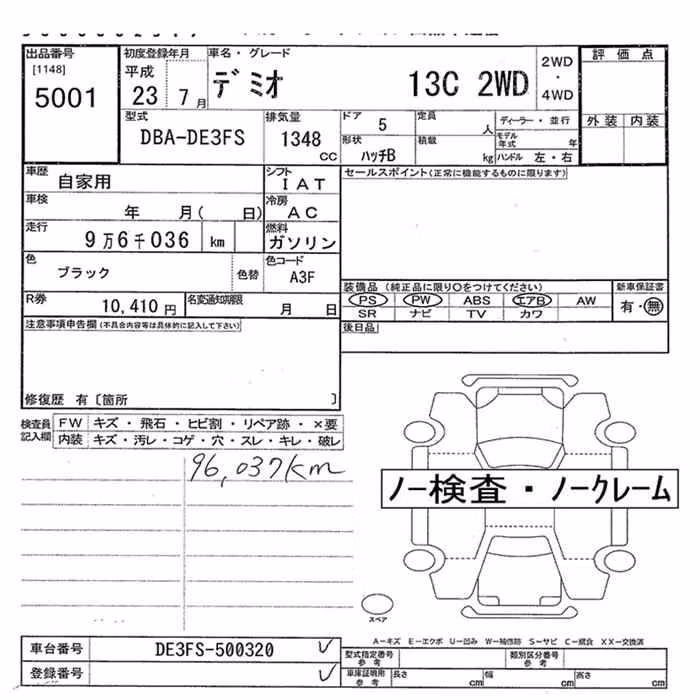 出品番号
[1148]
5001
初度登録年月
平成
23 7月
車名・グレード
デミオ 13C 2WD
2WD
・
4WD
評価点
外装 内装
型式
DBA-DE3FS
排気量
1348
CC
ドア 5
定員 人
ディーラー・並行
モデル年式 年
形状 ハッチB
積載 kg
ハンドル 左・右
車歴 自家用
シフト IAT
車検 年 月( 日)
冷房 AC
走行 9万6千036 km
燃料 ガソリン
色 ブラック 色替
色コード A3F
R券 10,410円
名変通知期限 月 日
セールスポイント(正常に機能するものに限ります)
装備品(純正品に限り〇をつけてください)
PS PW ABS エアB AW
SR ナビ TV カワ
新車保証書
有・無
後日品
注意事項申告欄(不具合内容等は具体的に記入して下さい)
修復歴 有〔箇所 〕
検査員記入欄
FW キズ・飛石・ヒビ割・リペア跡・×要
内装 キズ・汚レ・コゲ・穴・スレ・キレ・破レ
96,037km
ノー検査・ノークレーム
スペア
A－キズ E－エクボ U－凹み W－補修跡 S－サビ C－腐食 XX－交換済
車台番号 DE3FS-500320
登録番号
型式指定番号
参考
類別区分番号
参考
車庫証明用
参考
長さ cm
幅 cm
高さ cm